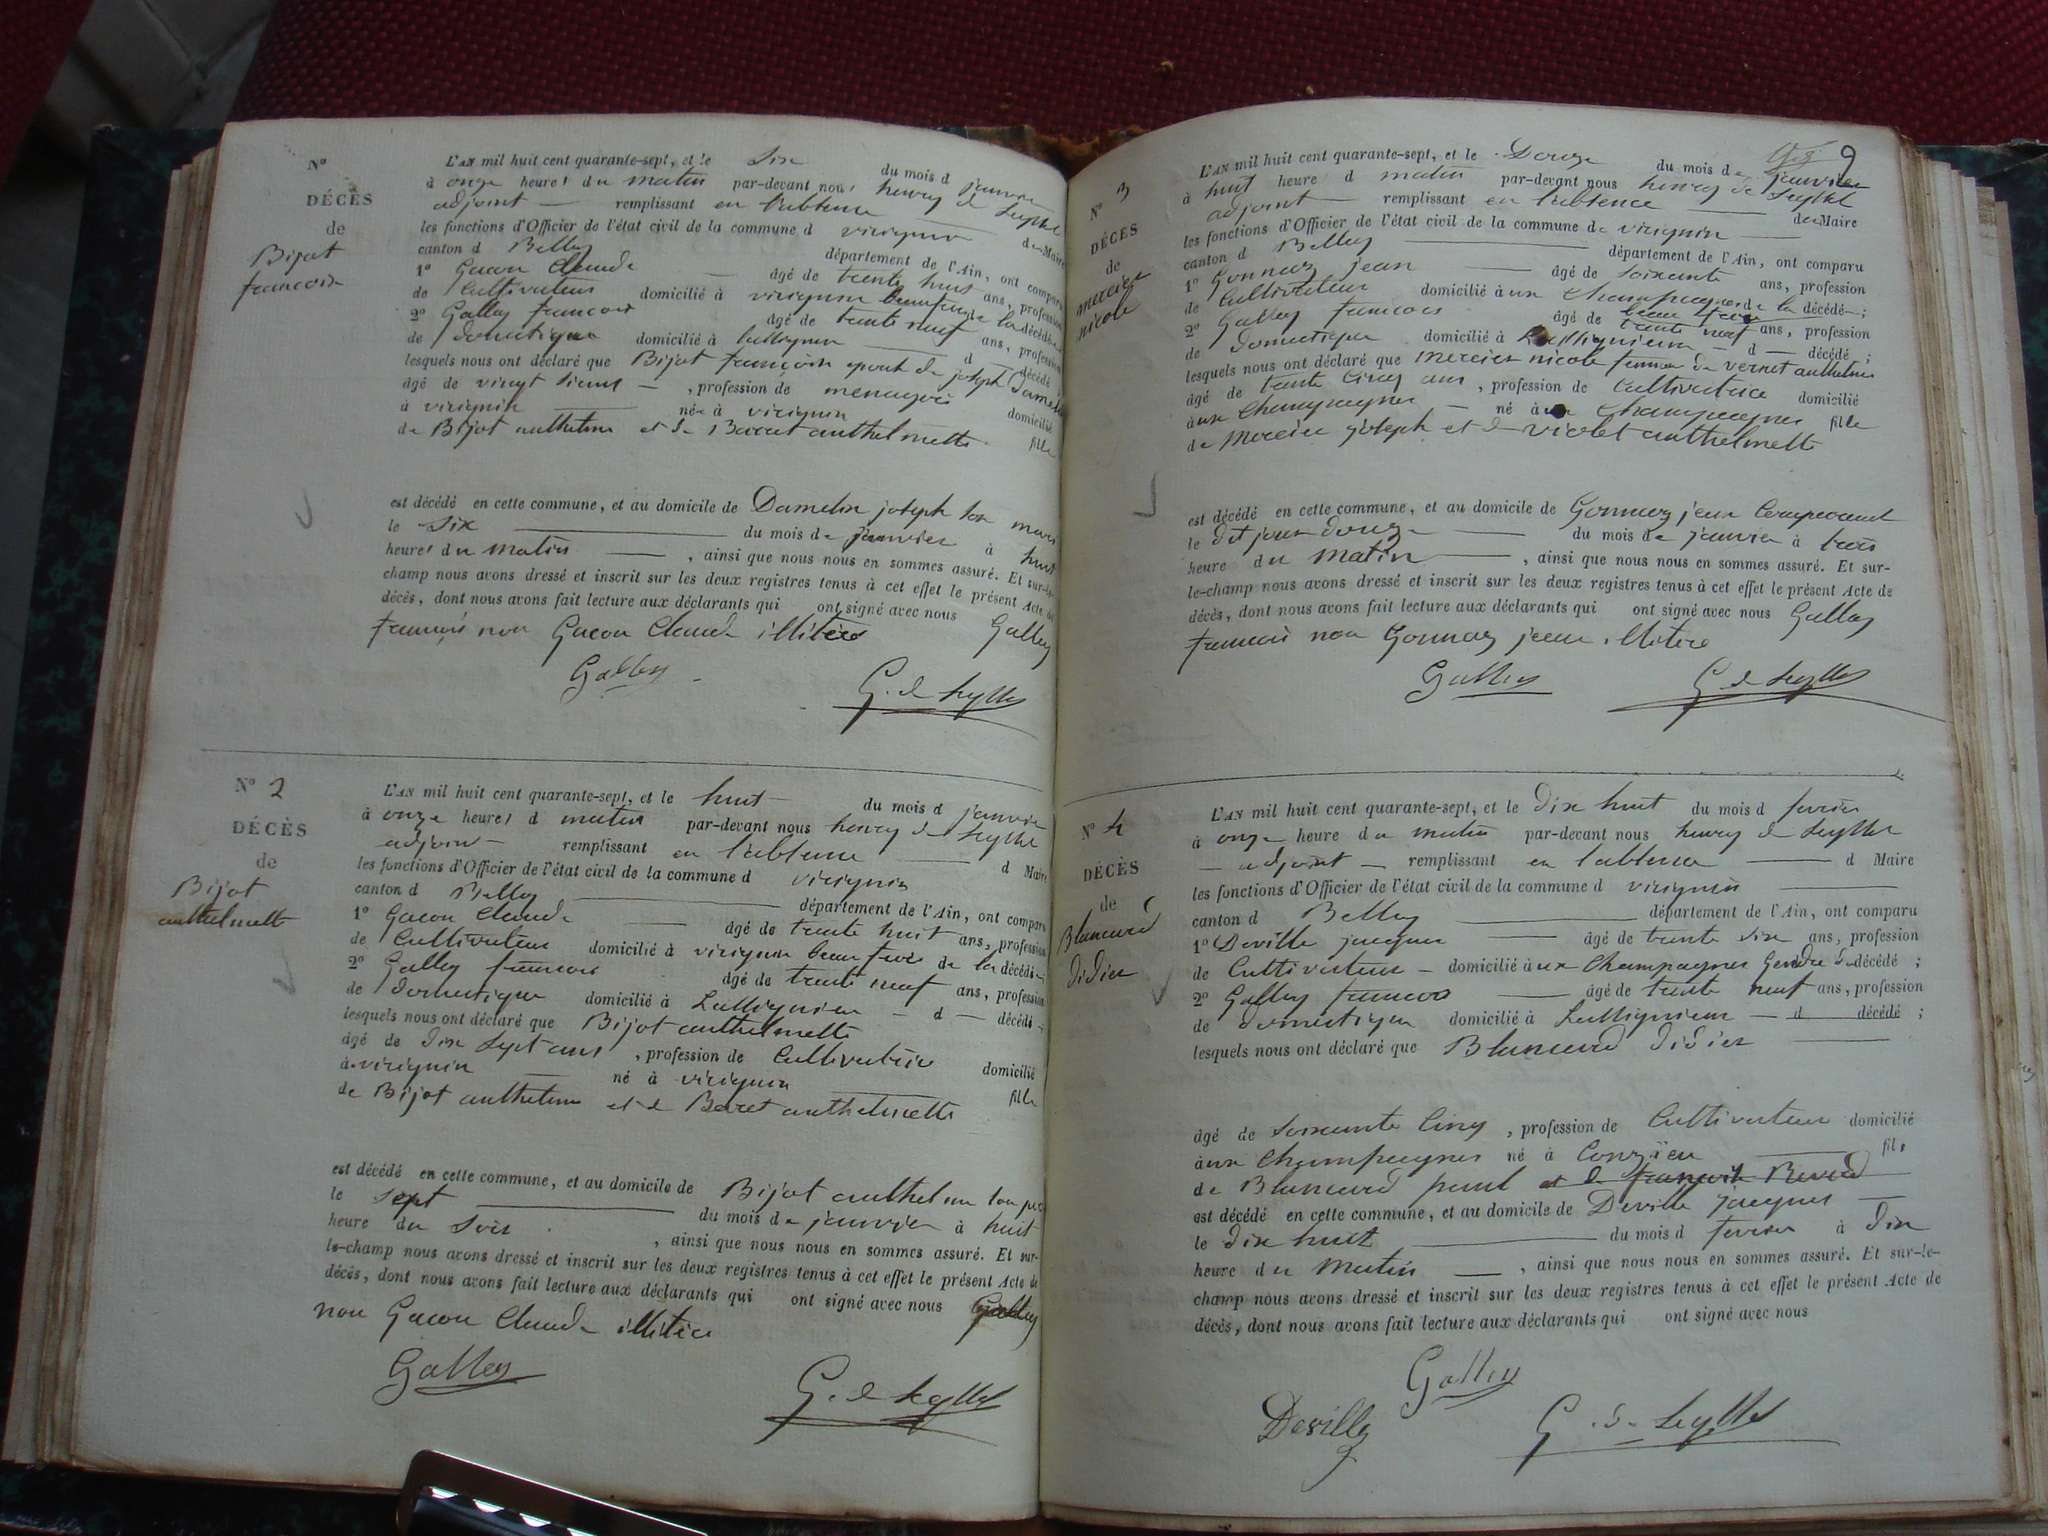 N°
DÉCÈS
de
Bijot
francoise
L'AN mil huit cent quarante-sept, et le Six du mois d janvier
à onze heures du matin par-devant nous henry de Seyssel
adjoint remplissant en l'absence du Maire
les fonctions d'Officier de l'état civil de la commune d virignin
canton d Belley département de l'Ain, ont comparu
1° Gacon Claude âgé de trente huit ans, profession
de Cultivateur domicilié à virignin beau frere de la décédée
2° Galley francois âgé de trente neuf ans, profession
de domestique domicilié à d décédé ;
lesquels nous ont déclaré que Bijot françoise de joseph
âgé de vingt ans , profession de menagere domicilié
à virignin née à virignin fille
de Bijot anthelme et de anthelmette
est décédé en cette commune, et au domicile de Damelin joseph son mari
le Six du mois de janvier à huit
heures du matin , ainsi que nous nous en sommes assuré. Et sur-le-
champ nous avons dressé et inscrit sur les deux registres tenus à cet effet le présent Acte de
décès, dont nous avons fait lecture aux déclarants qui ont signé avec nous Galley
francois non Gacon Claude illitéré
Galley
G. de Seyssel
N° 2
DÉCÈS
de
Bijot
anthelmette
L'AN mil huit cent quarante-sept, et le huit du mois d janvier
à onze heures d matin par-devant nous henry de Seyssel
adjoint remplissant en l'absence d Maire
les fonctions d'Officier de l'état civil de la commune d virignin
canton d Belley département de l'Ain, ont comparu
1° Gacon Claude âgé de trente huit ans, profession
de Cultivateur domicilié à virignin beau frere de la décédée
2° Galley francois âgé de trente neuf ans, profession
de domestique domicilié à d décédé
lesquels nous ont déclaré que Bijot anthelmette
âgé de dix sept ans , profession de Cultivatrice domicilié
à virignin né à virignin fille
de Bijot anthelme et de Barret anthelmette
est décédé en cette commune, et au domicile de Bijot anthelme son pere
le sept du mois de janvier à huit
heure du soir , ainsi que nous nous en sommes assuré. Et sur-
le-champ nous avons dressé et inscrit sur les deux registres tenus à cet effet le présent Acte de
décès, dont nous avons fait lecture aux déclarants qui ont signé avec nous Galley
non Gacon Claude illitéré
Galley
G. de Seyssel
9
N° 3
DÉCÈS
de
mercier
nicole
L'AN mil huit cent quarante-sept, et le Douze du mois de janvier
à huit heure d matin par-devant nous henry de Seyssel
adjoint remplissant en l'absence du Maire
les fonctions d'Officier de l'état civil de la commune de virignin
canton d Belley département de l'Ain, ont comparu
1° Gonnaz jean âgé de soixante ans, profession
de Cultivateur domicilié à aux Champagnes beau frere de la décédée ;
2° Galley francois âgé de trente neuf ans, profession
de domestique domicilié à d décédé ;
lesquels nous ont déclaré que mercier nicole femme de verret anthelme
âgé de trente cinq ans , profession de Cultivatrice domicilié
aux Champagnes né aux Champagnes fille
de Mercier joseph et de violet anthelmette
est décédé en cette commune, et au domicile de Gonnaz jean Comparant
le dit jour douze du mois de janvier à trois
heure du matin , ainsi que nous nous en sommes assuré. Et sur-
le-champ nous avons dressé et inscrit sur les deux registres tenus à cet effet le présent Acte de
décès, dont nous avons fait lecture aux déclarants qui ont signé avec nous Galley
francois non Gonnaz jean illitéré
Galley
G. de Seyssel
N° 4
DÉCÈS
de
Blancard
didier
L'AN mil huit cent quarante-sept, et le dix huit du mois d fevrier
à onze heure du matin par-devant nous henry de Seyssel
adjoint remplissant en l'absence d Maire
les fonctions d'Officier de l'état civil de la commune d virignin
canton d Belley département de l'Ain, ont comparu
1° Deville jacques âgé de trente six ans, profession
de Cultivateur domicilié aux Champagnes Gendre du décédé ;
2° Galley francois âgé de trente neuf ans, profession
de domestique domicilié à d décédé ;
lesquels nous ont déclaré que Blancard didier
âgé de soixante cinq , profession de Cultivateur domicilié
aux Champagnes né à Conzieu fils
de Blancard paul et de françoise
est décédé en cette commune, et au domicile de Deville jacques
le dix huit du mois d fevrier à dix
heure du matin , ainsi que nous nous en sommes assuré. Et sur-le-
champ nous avons dressé et inscrit sur les deux registres tenus à cet effet le présent Acte de
décès, dont nous avons fait lecture aux déclarants qui ont signé avec nous
Galley
Deville
G. de Seyssel